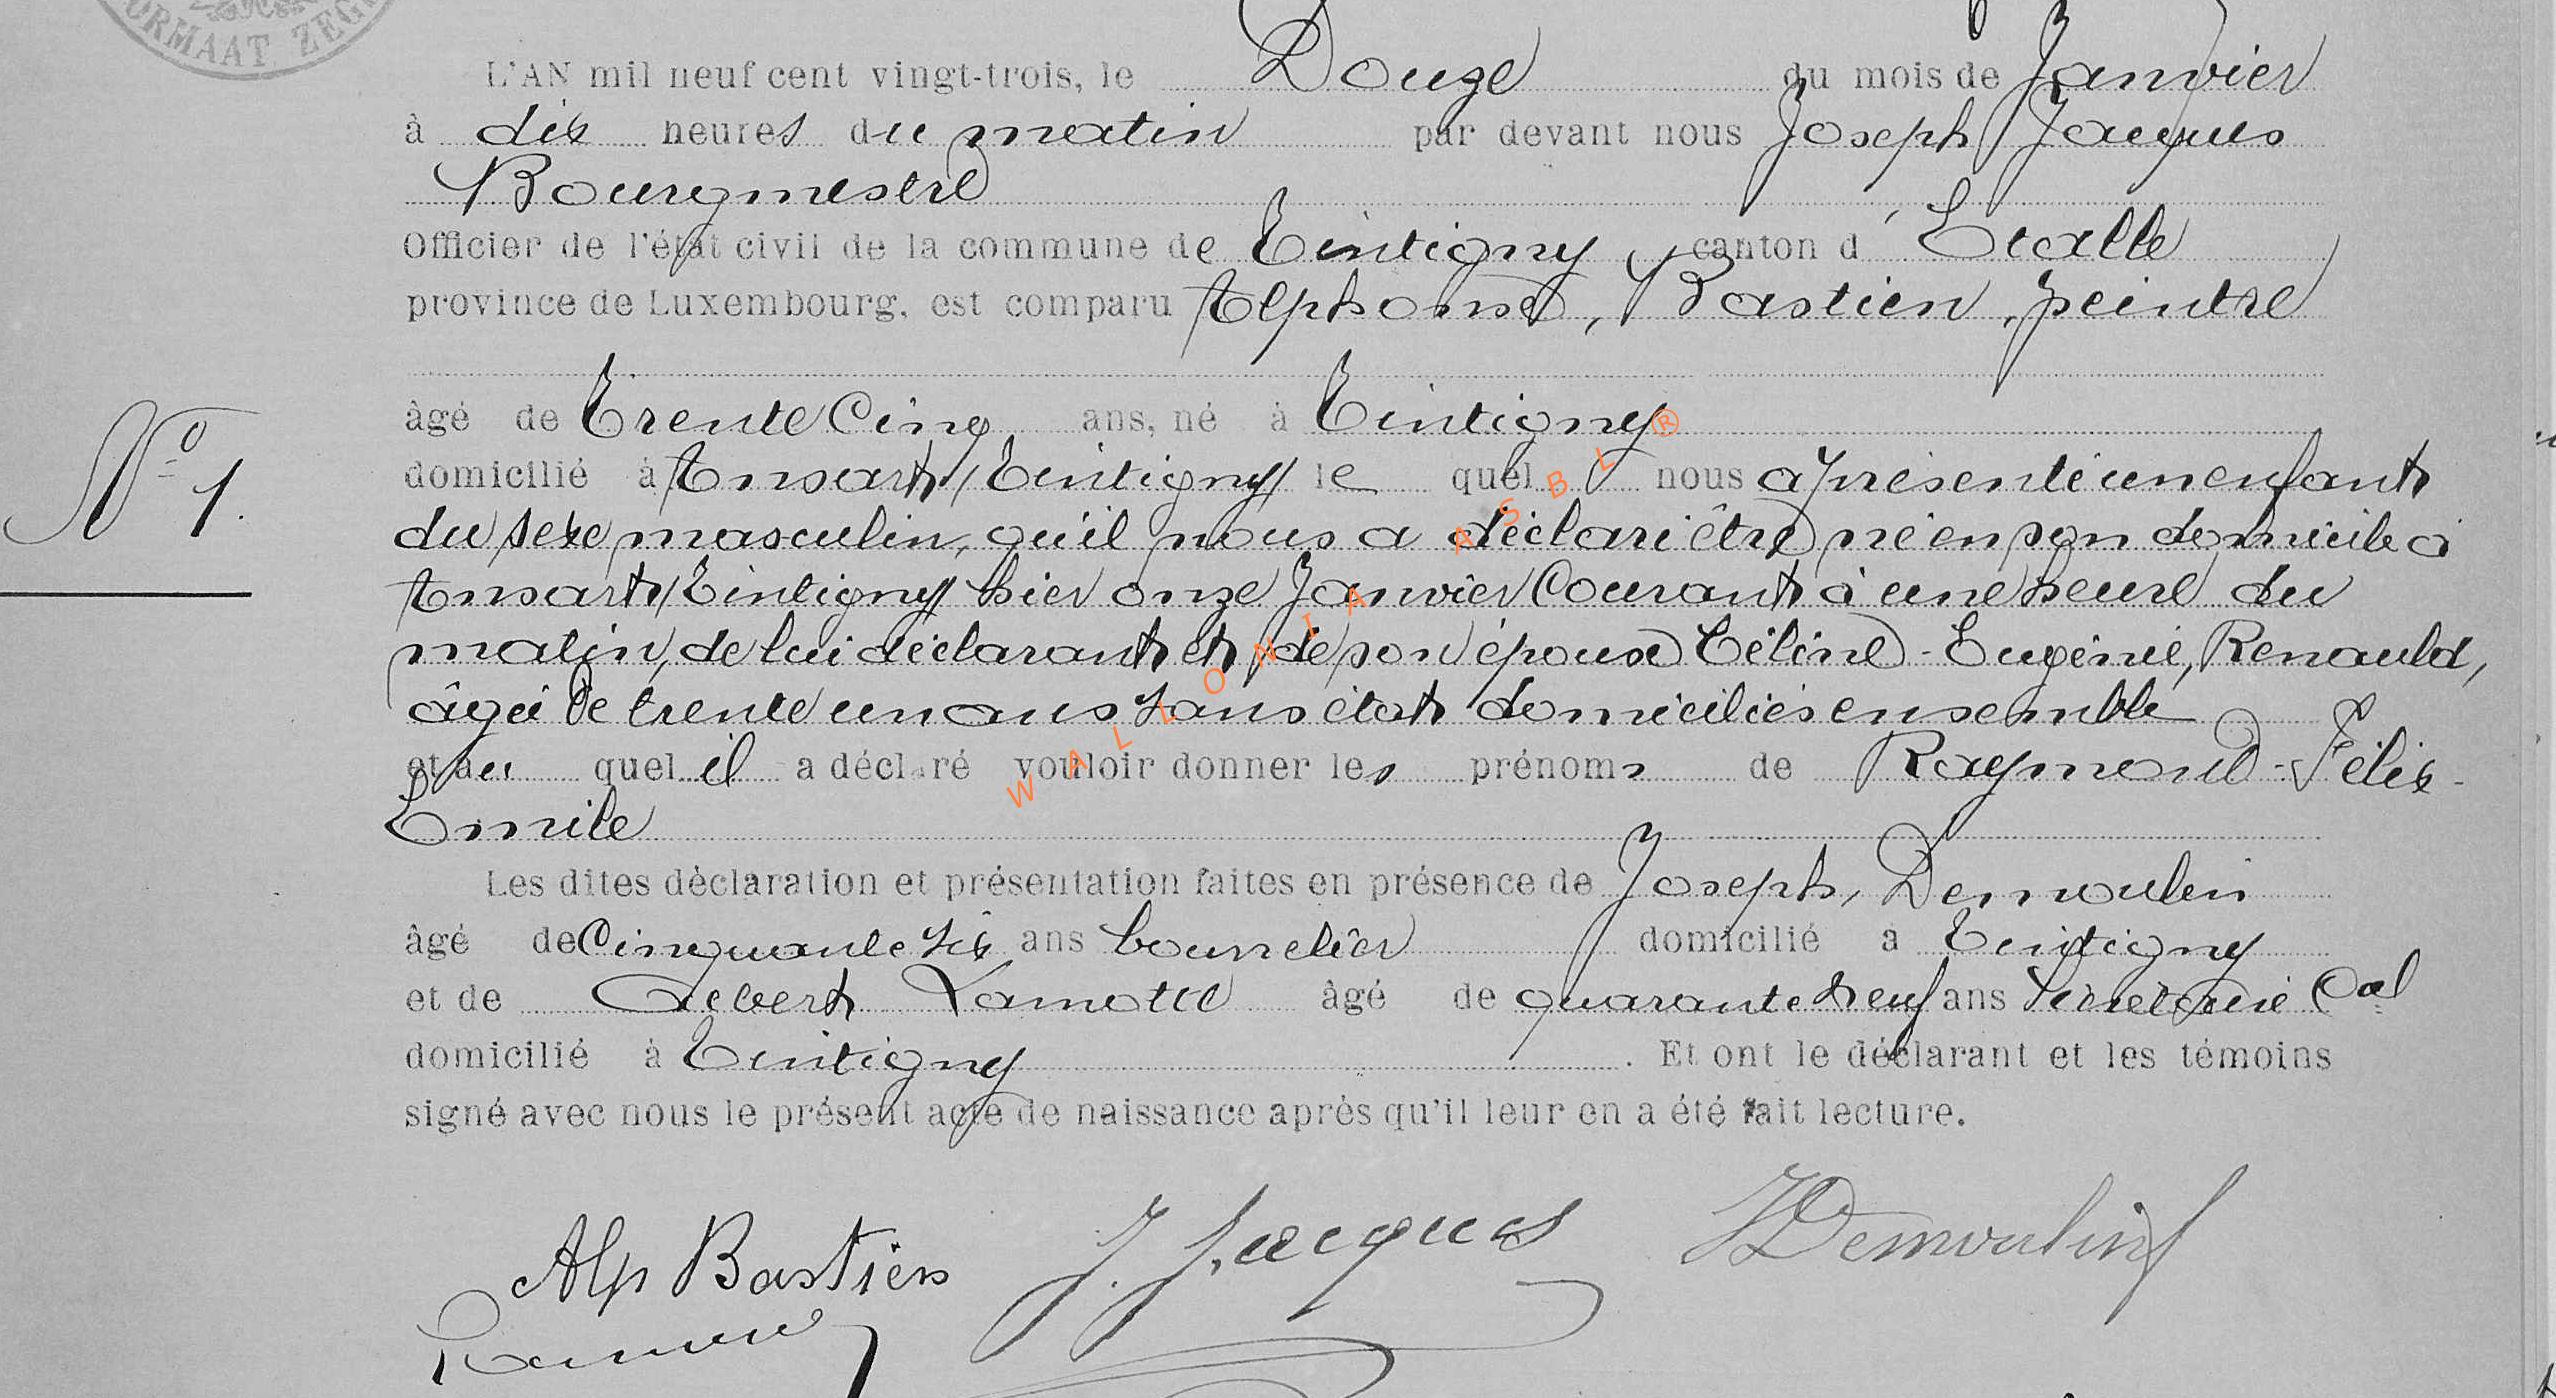 ORMAAT ZEG
L'AN mil neuf cent vingt-trois, le Douze du mois de Janvier
à dix heures du matin par devant nous Joseph Jacques
Bourgmestre
Officier de l'état civil de la commune de Tintigny canton d'Etalle
province de Luxembourg, est comparu Alphonse, Bastien, peintre
âgé de Trente Cinq ans, né à Tintigny
N° 1.
domicilié à Ansart (Tintigny) lequel nous a présenté un enfant
du sexe masculin, qu'il nous a déclaré être né en son domicile à
Ansart (Tintigny) hier onze Janvier Courant à une heure du
matin, de lui déclarant et de son épouse Céline-Eugénie, Renauld,
âgée de trente un ans sans état domiciliés ensemble
et auquel il a déclaré vouloir donner les prénoms de Raymond-Félix-
Emile
Les dites déclaration et présentation faites en présence de Joseph, Demoulin
âgé de Cinquante six ans bourrelier domicilié à Tintigny
et de Albert Lamotte âgé de quarante neuf ans Secrétaire Cal
domicilié à Tintigny. Et ont le déclarant et les témoins
signé avec nous le présent acte de naissance après qu'il leur en a été fait lecture.
Alp Bastien J. Jacques J Demoulin
WALLONIA ASBL®